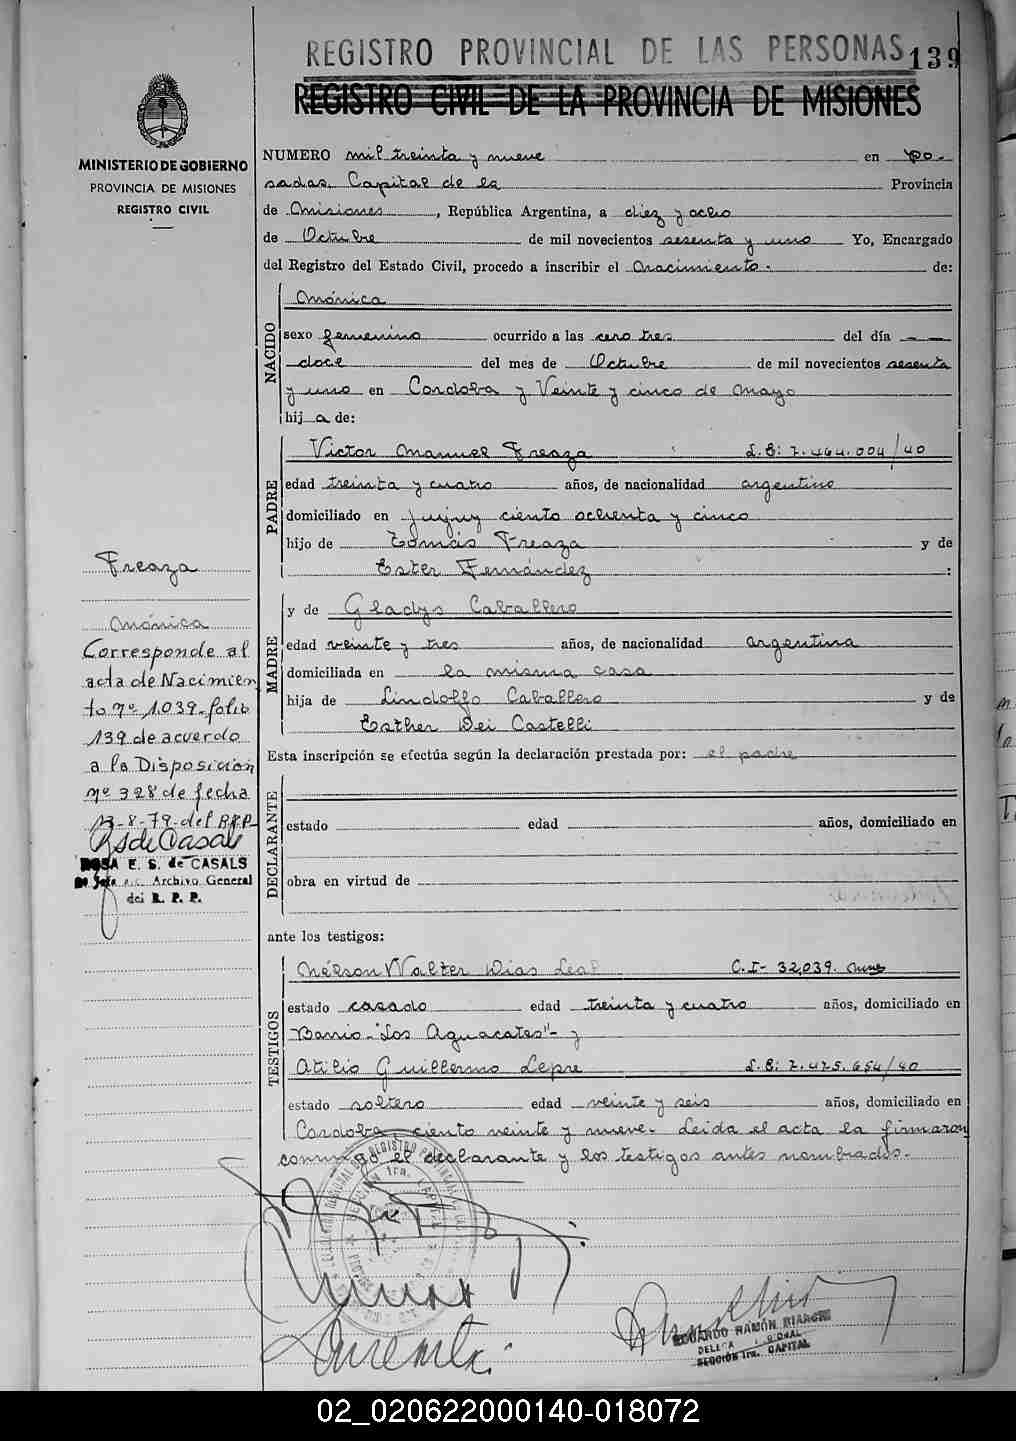 REGISTRO PROVINCIAL DE LAS PERSONAS
139
REGISTRO CIVIL DE LA PROVINCIA DE MISIONES
MINISTERIO DE GOBIERNO
PROVINCIA DE MISIONES
REGISTRO CIVIL
NUMERO mil treinta y nueve en Po-
sadas, Capital de la Provincia
de Misiones, República Argentina, a diez y ocho
de Octubre de mil novecientos sesenta y uno Yo, Encargado
del Registro del Estado Civil, procedo a inscribir el Nacimiento.- de:
NACIDO
Mónica
sexo femenino ocurrido a las cero tres del día — —
doce del mes de Octubre de mil novecientos sesenta
y uno en Cordoba y Veinte y cinco de Mayo
hij a de:
PADRE
Victor Manuel Freaza L.E: 7.464.004/40
edad treinta y cuatro años, de nacionalidad argentino
domiciliado en Jujuy ciento ochenta y cinco
hijo de Tomás Freaza y de
Ester Fernández :
MADRE
y de Gladys Caballero
edad veinte y tres años, de nacionalidad argentina
domiciliada en la misma casa
hija de Lindolfo Caballero y de
Esther Dei Castelli
Esta inscripción se efectúa según la declaración prestada por: el padre
DECLARANTE
estado edad años, domiciliado en
obra en virtud de
ante los testigos:
TESTIGOS
Nélson Walter Dias Leal C.I- 32,039. Mnes
estado casado edad treinta y cuatro años, domiciliado en
Barrio "Los Aguacates"- y
Atilio Guillermo Lepre L.E: 7.475.654/40
estado soltero edad veinte y seis años, domiciliado en
Cordoba ciento veinte y nueve.- Leida el acta la firmaron
conmigo el declarante y los testigos antes nombrados.-
Freaza
Mónica
Corresponde al
acta de Nacimien
to nº 1.039.-folio
139 de acuerdo
a la Disposición
nº 328 de fecha
13-8-79 del R.P.P-
RSdeCasals
ROSA E. S. de CASALS
Archivo General
del R. P. P.
EDUARDO RAMÓN BIANCHI
SECCIÓN 1ra. CAPITAL
02_020622000140-018072